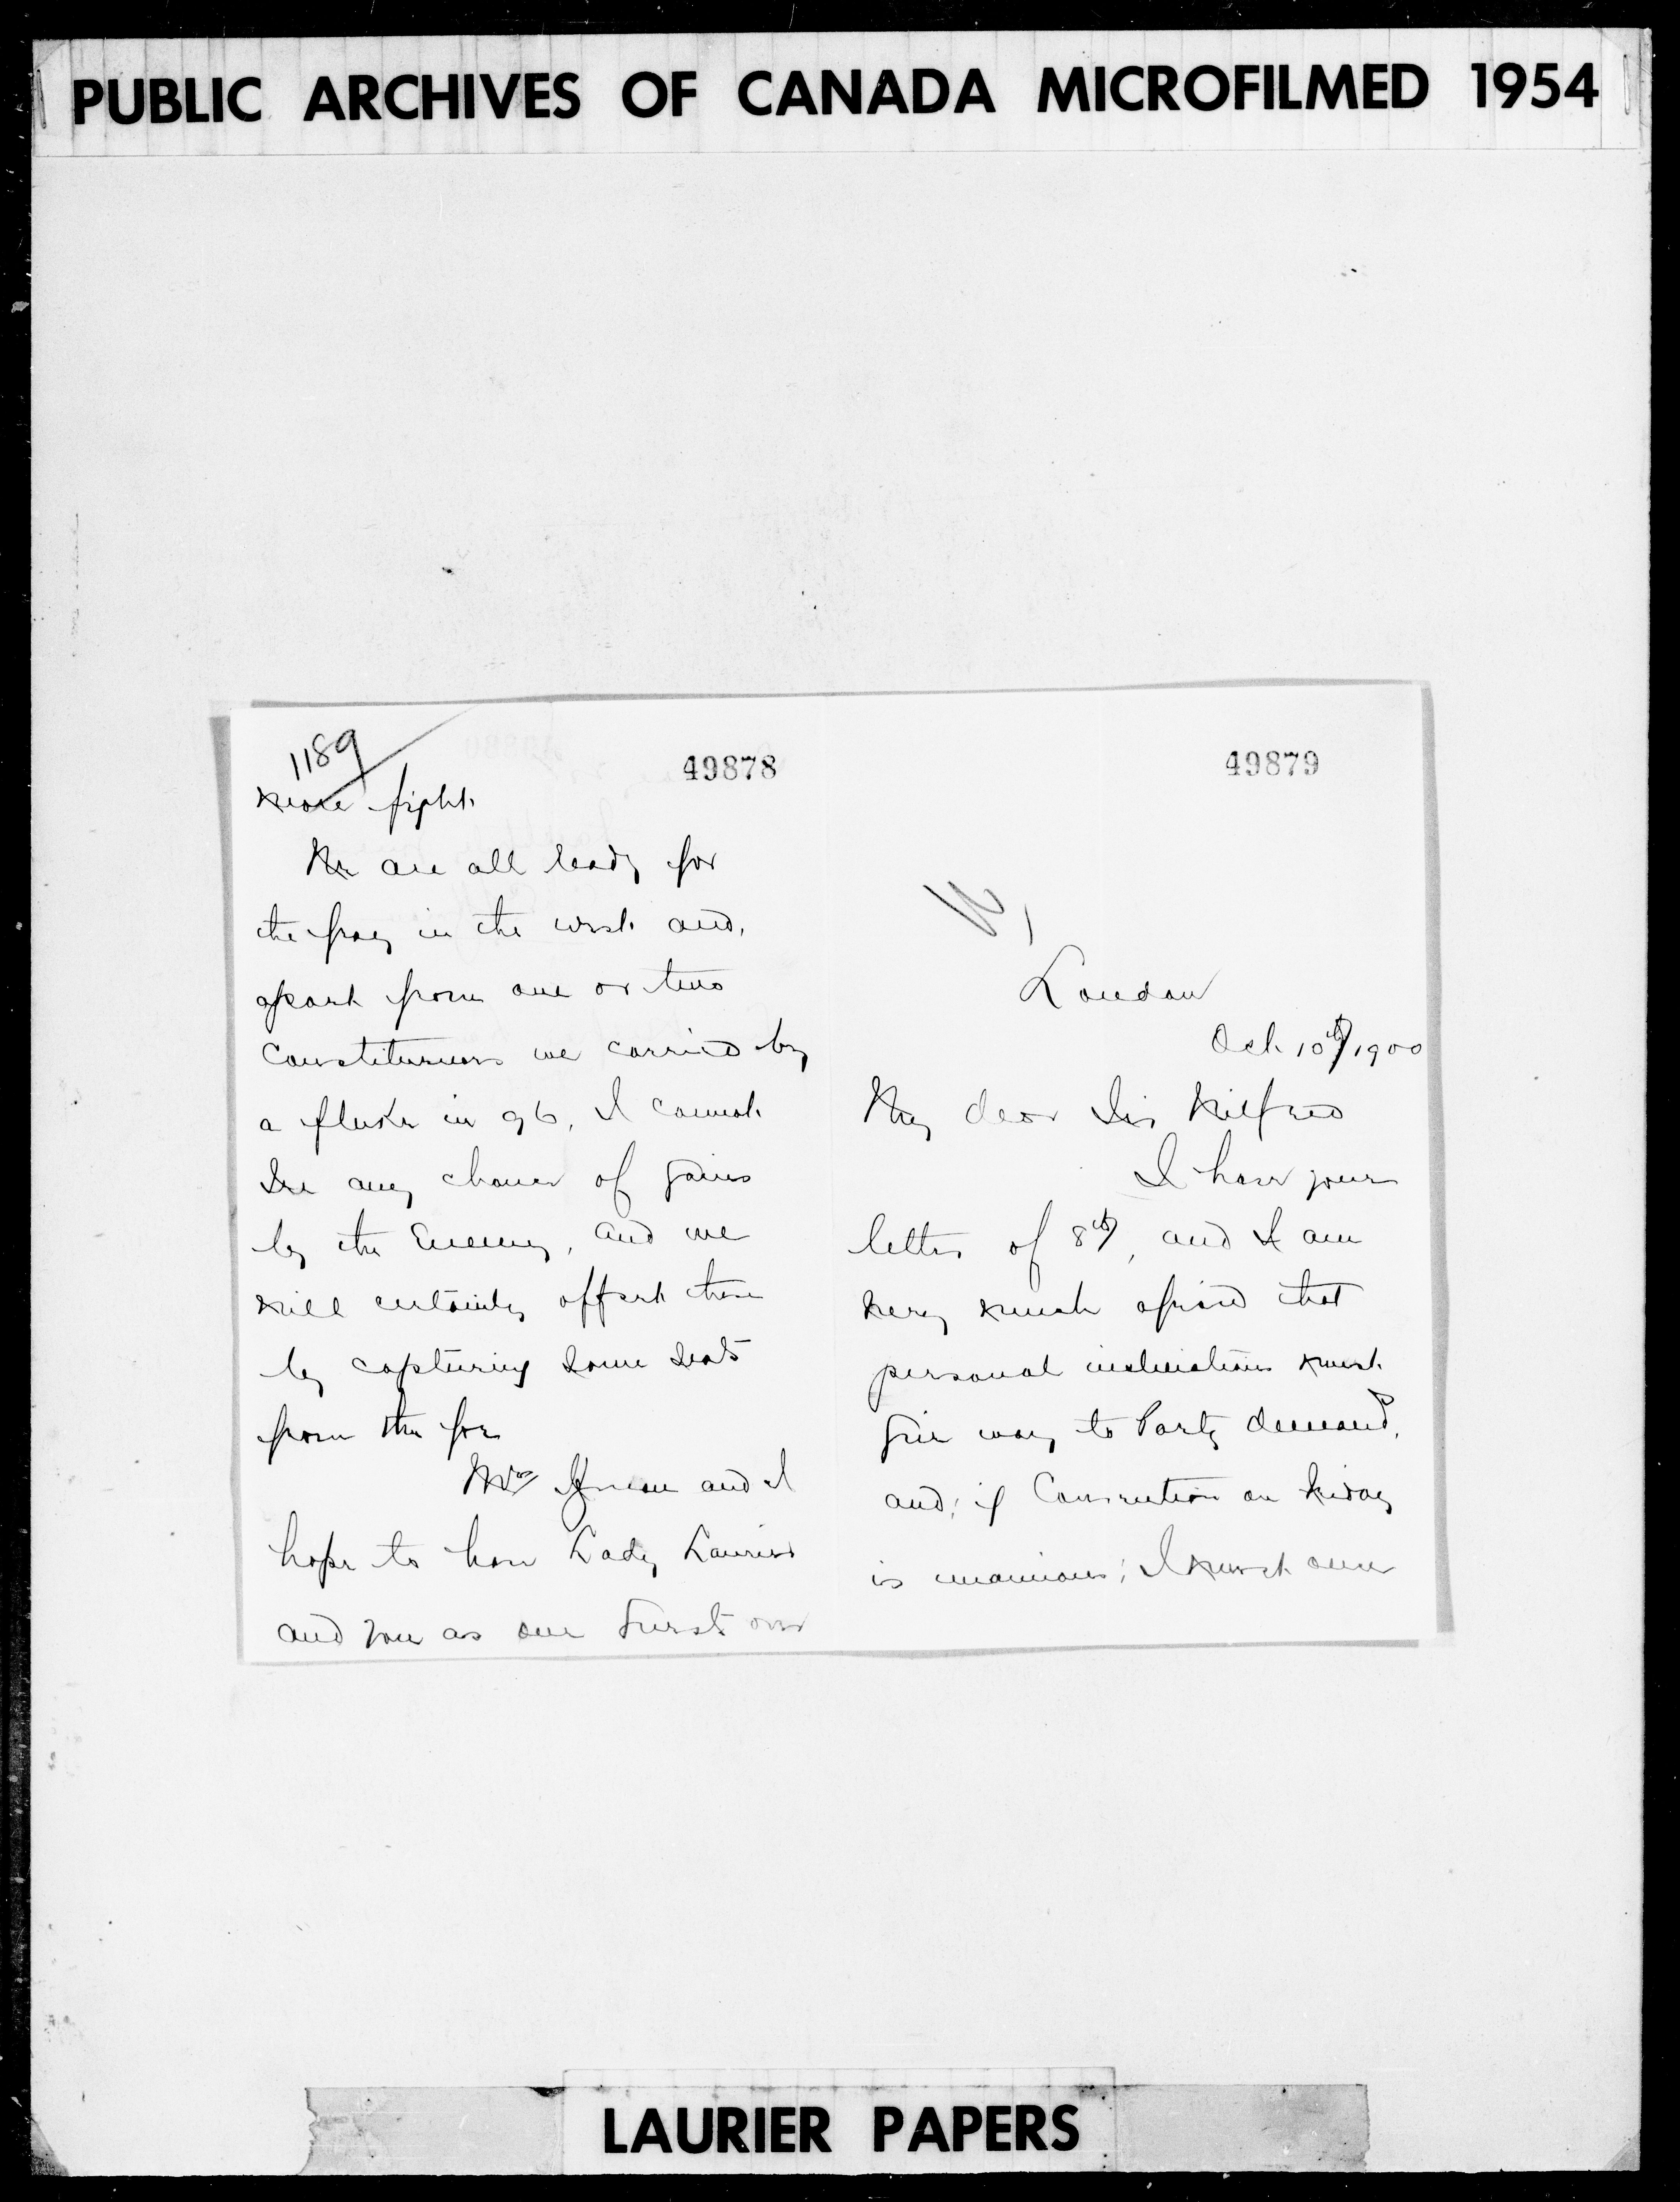 PUBLIC ARCHIVES OF CANADA MICROFILMED 1954
1189
49878
more fight.
We are all ready for
the fray in the west and,
apart from one or two
Constituencies we carried by
a fluke in 96, I cannot
see any chance of gains
by the Enemy, and we
will certainly offset these
by capturing some seats
from the foe
Mrs Hyman and I
hope to have Lady Laurier
and you as our Guests over
49879
London
Oct 10th/1900
My dear Sir Wilfred
I have your
letter of 8th, and I am
very much afraid that
personal inclinations must
give way to Party demand,
and, if Convention on Friday
is unanimous, I must once
LAURIER PAPERS